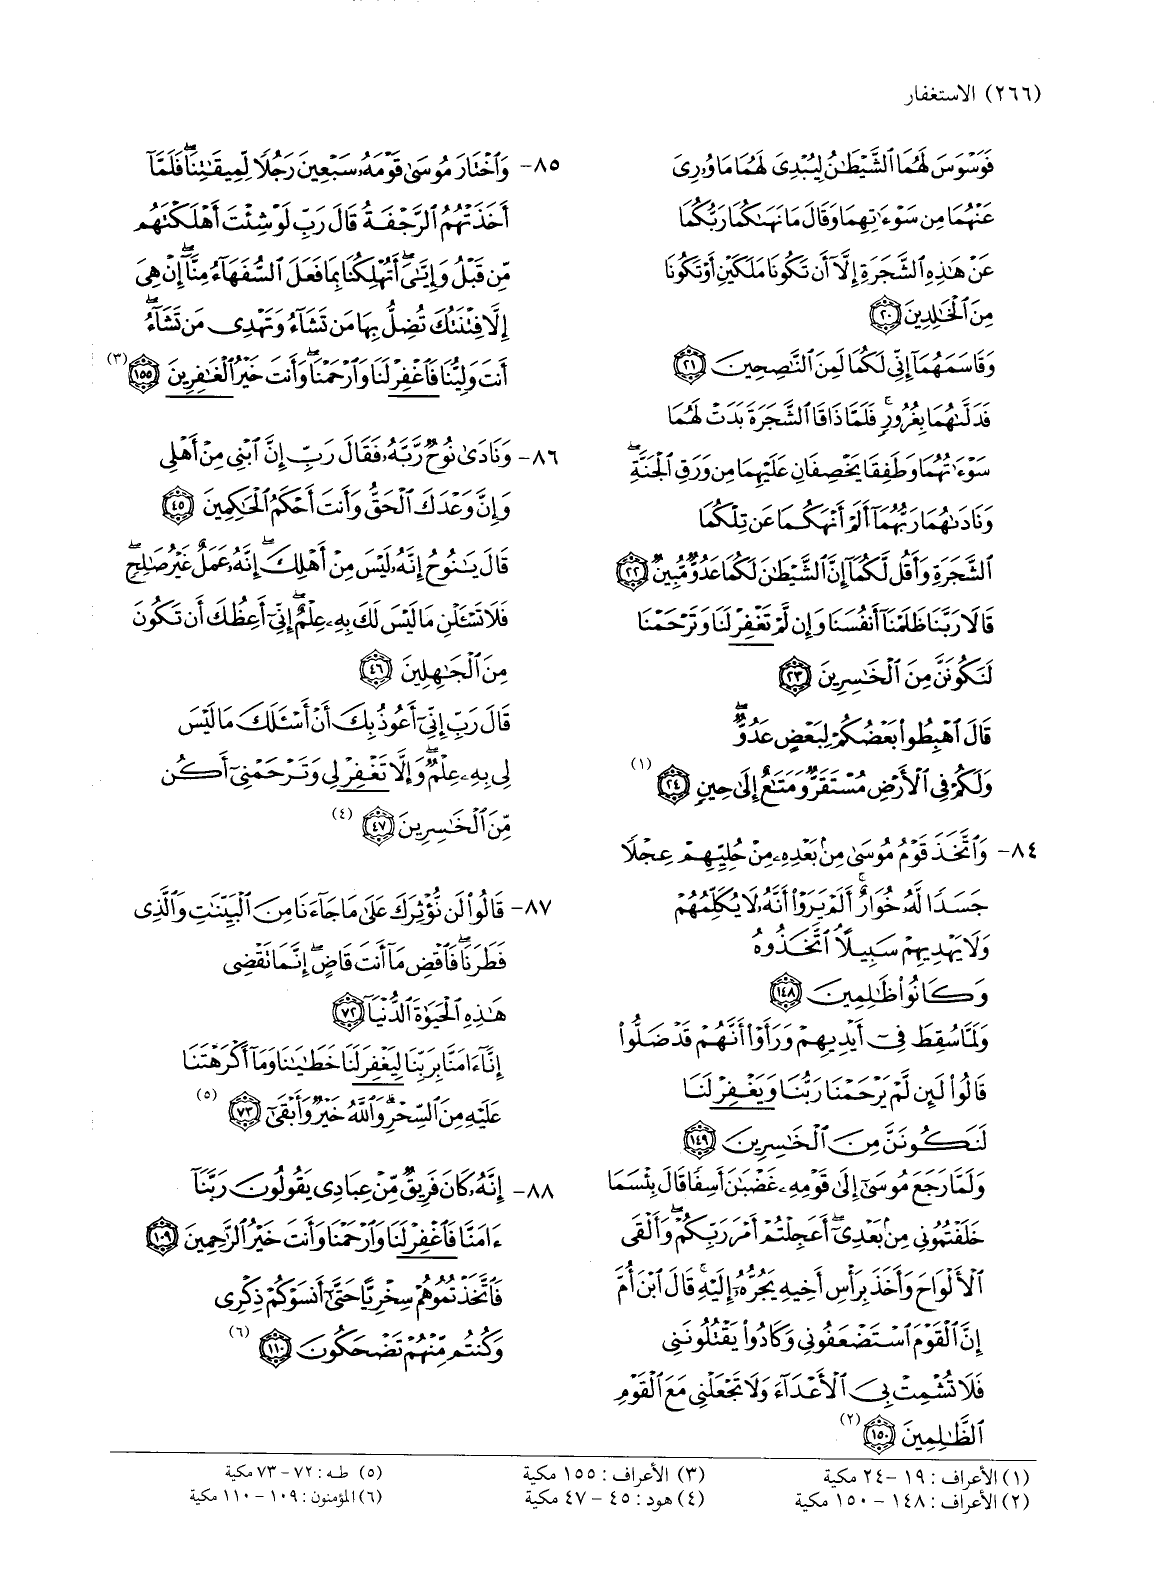 (٢٦٦) الاستغفار
فَوَسْوَسَ لَهُمَا ٱلشَّيْطَٰنُ لِيُبْدِىَ لَهُمَا مَا وُۥرِىَ
عَنْهُمَا مِن سَوْءَٰتِهِمَا وَقَالَ مَا نَهَىٰكُمَا رَبُّكُمَا
عَنْ هَٰذِهِ ٱلشَّجَرَةِ إِلَّآ أَن تَكُونَا مَلَكَيْنِ أَوْ تَكُونَا
مِنَ ٱلْخَٰلِدِينَ ﴿٢٠﴾
وَقَاسَمَهُمَآ إِنِّى لَكُمَا لَمِنَ ٱلنَّٰصِحِينَ ﴿٢١﴾
فَدَلَّىٰهُمَا بِغُرُورٍ ۚ فَلَمَّا ذَاقَا ٱلشَّجَرَةَ بَدَتْ لَهُمَا
سَوْءَٰتُهُمَا وَطَفِقَا يَخْصِفَانِ عَلَيْهِمَا مِن وَرَقِ ٱلْجَنَّةِ ۖ
وَنَادَىٰهُمَا رَبُّهُمَآ أَلَمْ أَنْهَكُمَا عَن تِلْكُمَا
ٱلشَّجَرَةِ وَأَقُل لَّكُمَآ إِنَّ ٱلشَّيْطَٰنَ لَكُمَا عَدُوٌّ مُّبِينٌ ﴿٢٢﴾
قَالَا رَبَّنَا ظَلَمْنَآ أَنفُسَنَا وَإِن لَّمْ تَغْفِرْ لَنَا وَتَرْحَمْنَا
لَنَكُونَنَّ مِنَ ٱلْخَٰسِرِينَ ﴿٢٣﴾
قَالَ ٱهْبِطُوا۟ بَعْضُكُمْ لِبَعْضٍ عَدُوٌّ ۖ
وَلَكُمْ فِى ٱلْأَرْضِ مُسْتَقَرٌّ وَمَتَٰعٌ إِلَىٰ حِينٍ ﴿٢٤﴾ (١)
٨٤- وَٱتَّخَذَ قَوْمُ مُوسَىٰ مِنۢ بَعْدِهِۦ مِنْ حُلِيِّهِمْ عِجْلًا
جَسَدًا لَّهُۥ خُوَارٌ ۚ أَلَمْ يَرَوْا۟ أَنَّهُۥ لَا يُكَلِّمُهُمْ
وَلَا يَهْدِيهِمْ سَبِيلًا ۘ ٱتَّخَذُوهُ
وَكَانُوا۟ ظَٰلِمِينَ ﴿١٤٨﴾
وَلَمَّا سُقِطَ فِىٓ أَيْدِيهِمْ وَرَأَوْا۟ أَنَّهُمْ قَدْ ضَلُّوا۟
قَالُوا۟ لَئِن لَّمْ يَرْحَمْنَا رَبُّنَا وَيَغْفِرْ لَنَا
لَنَكُونَنَّ مِنَ ٱلْخَٰسِرِينَ ﴿١٤٩﴾
وَلَمَّا رَجَعَ مُوسَىٰٓ إِلَىٰ قَوْمِهِۦ غَضْبَٰنَ أَسِفًا قَالَ بِئْسَمَا
خَلَفْتُمُونِى مِنۢ بَعْدِىٓ ۖ أَعَجِلْتُمْ أَمْرَ رَبِّكُمْ ۖ وَأَلْقَى
ٱلْأَلْوَاحَ وَأَخَذَ بِرَأْسِ أَخِيهِ يَجُرُّهُۥٓ إِلَيْهِ ۚ قَالَ ٱبْنَ أُمَّ
إِنَّ ٱلْقَوْمَ ٱسْتَضْعَفُونِى وَكَادُوا۟ يَقْتُلُونَنِى
فَلَا تُشْمِتْ بِىَ ٱلْأَعْدَآءَ وَلَا تَجْعَلْنِى مَعَ ٱلْقَوْمِ
ٱلظَّٰلِمِينَ ﴿١٥٠﴾ (٢)
٨٥- وَٱخْتَارَ مُوسَىٰ قَوْمَهُۥ سَبْعِينَ رَجُلًا لِّمِيقَٰتِنَا ۖ فَلَمَّآ
أَخَذَتْهُمُ ٱلرَّجْفَةُ قَالَ رَبِّ لَوْ شِئْتَ أَهْلَكْتَهُم
مِّن قَبْلُ وَإِيَّٰىَ ۖ أَتُهْلِكُنَا بِمَا فَعَلَ ٱلسُّفَهَآءُ مِنَّآ ۖ إِنْ هِىَ
إِلَّا فِتْنَتُكَ تُضِلُّ بِهَا مَن تَشَآءُ وَتَهْدِى مَن تَشَآءُ ۖ
أَنتَ وَلِيُّنَا فَٱغْفِرْ لَنَا وَٱرْحَمْنَا ۖ وَأَنتَ خَيْرُ ٱلْغَٰفِرِينَ ﴿١٥٥﴾ (٣)
٨٦- وَنَادَىٰ نُوحٌ رَّبَّهُۥ فَقَالَ رَبِّ إِنَّ ٱبْنِى مِنْ أَهْلِى
وَإِنَّ وَعْدَكَ ٱلْحَقُّ وَأَنتَ أَحْكَمُ ٱلْحَٰكِمِينَ ﴿٤٥﴾
قَالَ يَٰنُوحُ إِنَّهُۥ لَيْسَ مِنْ أَهْلِكَ ۖ إِنَّهُۥ عَمَلٌ غَيْرُ صَٰلِحٍ ۖ
فَلَا تَسْـَٔلْنِ مَا لَيْسَ لَكَ بِهِۦ عِلْمٌ ۖ إِنِّىٓ أَعِظُكَ أَن تَكُونَ
مِنَ ٱلْجَٰهِلِينَ ﴿٤٦﴾
قَالَ رَبِّ إِنِّىٓ أَعُوذُ بِكَ أَنْ أَسْـَٔلَكَ مَا لَيْسَ
لِى بِهِۦ عِلْمٌ ۖ وَإِلَّا تَغْفِرْ لِى وَتَرْحَمْنِىٓ أَكُن
مِّنَ ٱلْخَٰسِرِينَ ﴿٤٧﴾ (٤)
٨٧- قَالُوا۟ لَن نُّؤْثِرَكَ عَلَىٰ مَا جَآءَنَا مِنَ ٱلْبَيِّنَٰتِ وَٱلَّذِى
فَطَرَنَا ۖ فَٱقْضِ مَآ أَنتَ قَاضٍ ۖ إِنَّمَا تَقْضِى
هَٰذِهِ ٱلْحَيَوٰةَ ٱلدُّنْيَآ ﴿٧٢﴾
إِنَّآ ءَامَنَّا بِرَبِّنَا لِيَغْفِرَ لَنَا خَطَٰيَٰنَا وَمَآ أَكْرَهْتَنَا
عَلَيْهِ مِنَ ٱلسِّحْرِ ۗ وَٱللَّهُ خَيْرٌ وَأَبْقَىٰٓ ﴿٧٣﴾ (٥)
٨٨- إِنَّهُۥ كَانَ فَرِيقٌ مِّنْ عِبَادِى يَقُولُونَ رَبَّنَآ
ءَامَنَّا فَٱغْفِرْ لَنَا وَٱرْحَمْنَا وَأَنتَ خَيْرُ ٱلرَّٰحِمِينَ ﴿١٠٩﴾
فَٱتَّخَذْتُمُوهُمْ سِخْرِيًّا حَتَّىٰٓ أَنسَوْكُمْ ذِكْرِى
وَكُنتُم مِّنْهُمْ تَضْحَكُونَ ﴿١١٠﴾ (٦)
(١) الأعراف : ١٩ -٢٤ مكية
(٢) الأعراف : ١٤٨ - ١٥٠ مكية
(٣) الأعراف : ١٥٥ مكية
(٤) هود : ٤٥ - ٤٧ مكية
(٥) طه : ٧٢ - ٧٣ مكية
(٦) المؤمنون : ١٠٩ - ١١٠ مكية